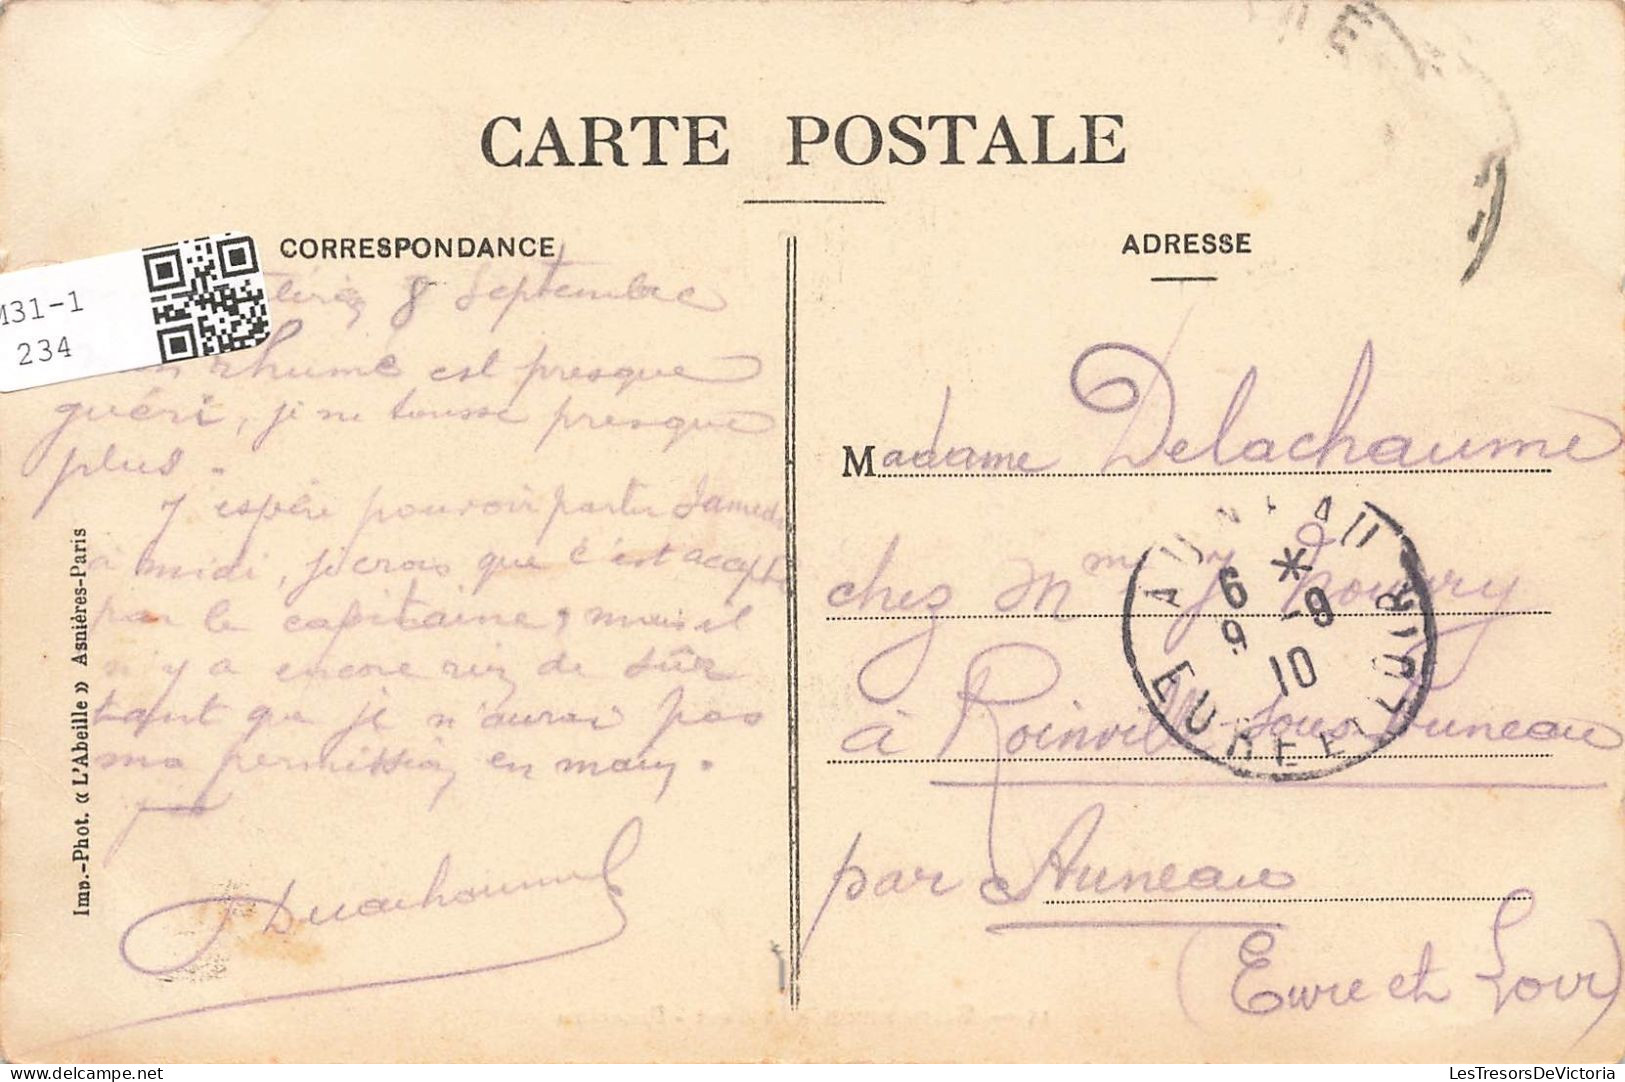 CARTE POSTALE
CORRESPONDANCE
ADRESSE
M31-1
234
8 Septembre
rhume est presque
guéri, je ne tousse presque
plus.
J'espère pouvoir partir Samedi
à midi, je crois que c'est accepté
par le capitaine, mais il
n'y a encore rien de sûr
tant que je n'aurai pas
ma permission en main.
Imp.-Phot. « L'Abeille » Asnières-Paris
Madame Delachaume
chez Mme
à Roinville-sous-Auneau
par Auneau
(Eure et Loir)
AUNEAU
6 * 9 -9 10
EURE ET LOIR
delcampe.net
LesTresorsDeVictoria